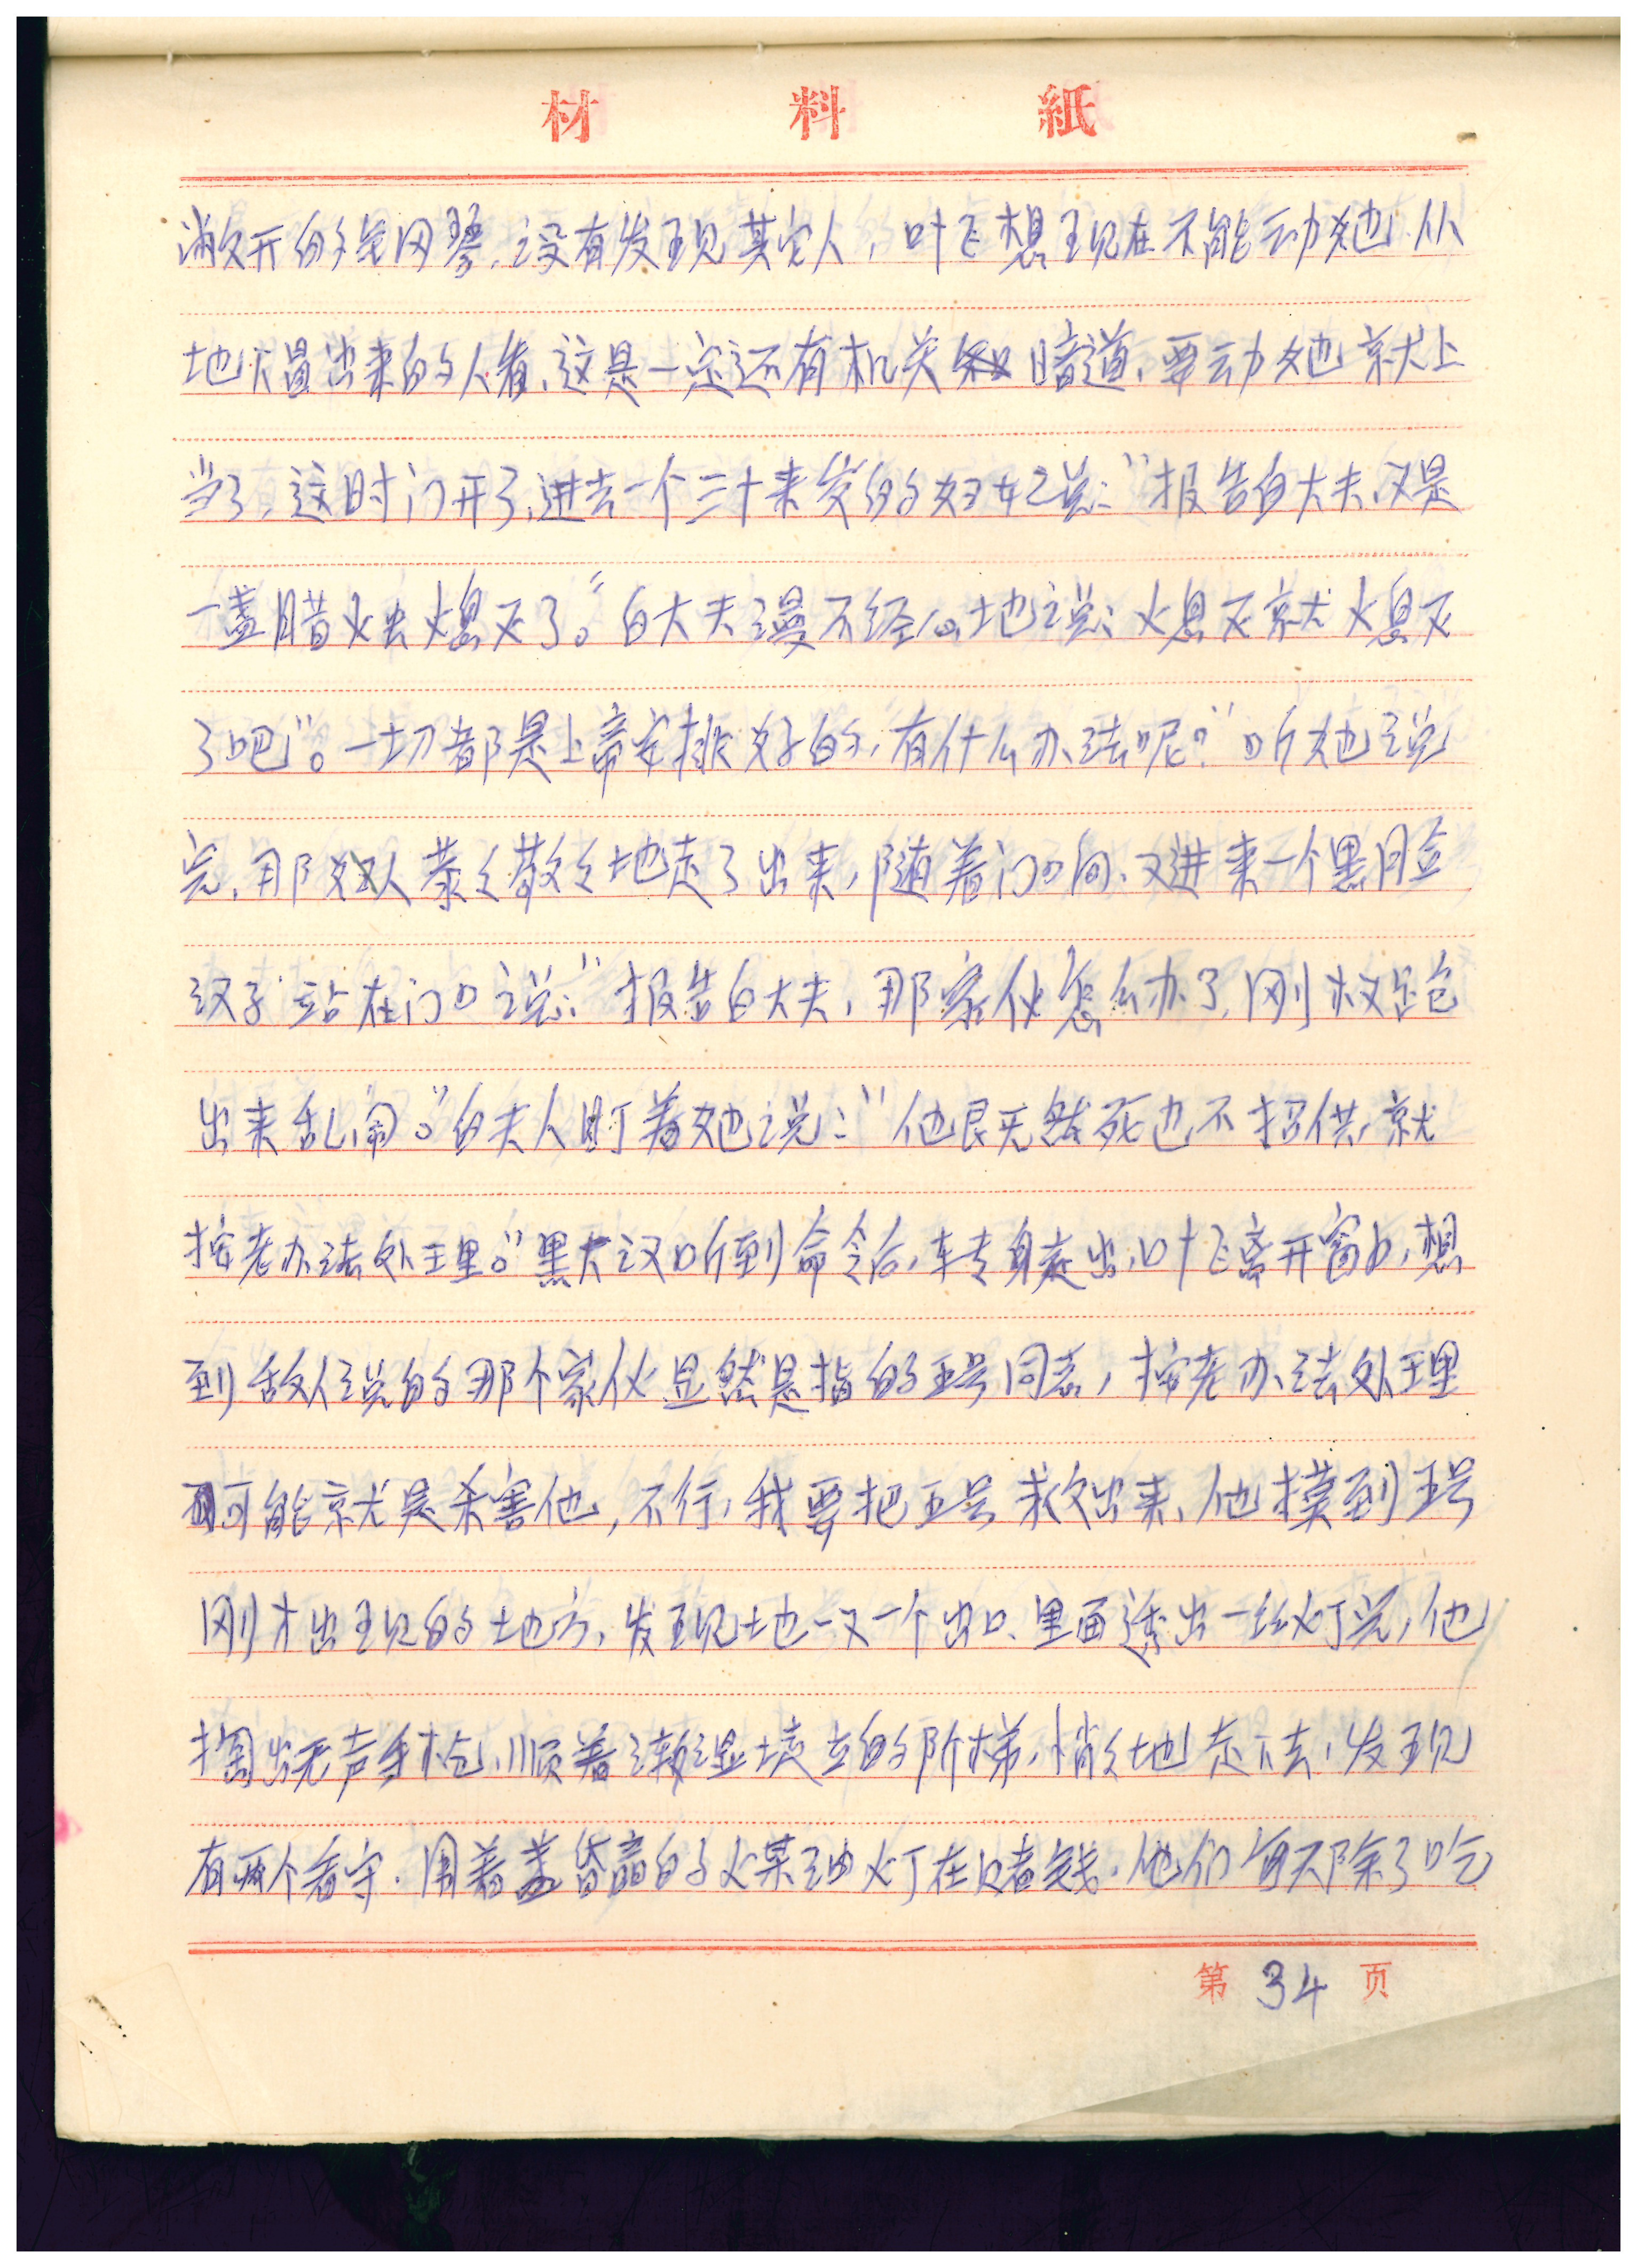 材料紙
敞开的纲琴，没有发现其它人，叶飞想现在不能动她，从
地下冒出来的人看，这是一定还有机关和暗道，要动她就上
当了，这时门开了，进去一个三十来岁的妇女说：“报告白大夫，又是
一盏腊火虫熄灭了。”白大夫漫不经心地说：熄灭就熄灭
了吧”。一切都是上帝安排好的，有什么办法呢？”听她说
完，那女人慕々散々地走了出来，随着门响，又进来一个黑脸
汉子站在门口说：“报告白大夫，那家伙怎么办了，刚才又跑
出来乱闹。”白夫人盯着她说：“他既然死也不招供，就
按老办法处理。”黑大汉听到命令后，转身走出，叶飞离开窗口，想
到敌人说的那个家伙显然是指的五号同志，按老办法处理
可能就是杀害他，不行，我要把五号救出来，他摸到五号
刚才出现的地方，发现地一又一个出口，里面透出一丝灯光，他
掏出无声手枪，顺着潮湿境立的阶梯，悄々地走下去，发现
有两个看守，围着盏昏暗的煤油灯在赌钱，他们每天除了吃
第34页